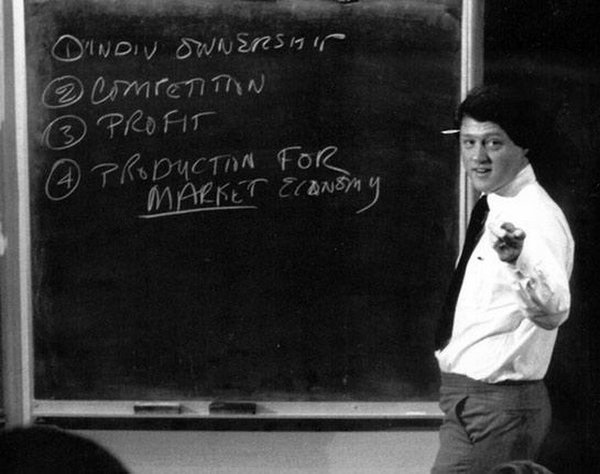 ① INDIV OWNERSHIP
② COMPETITION
③ PROFIT
④ PRODUCTION FOR
MARKET ECONOMY